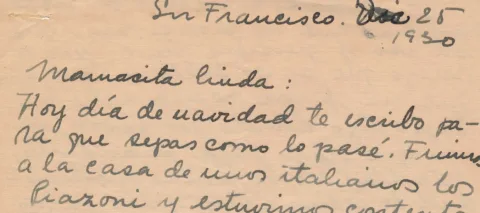 Sn Francisco. Dic 25
1930
Mamacita linda :
Hoy día de navidad te escribo pa-
ra que sepas como lo pasé. Fuimos
a la casa de unos italianos los
Piazoni y estuvimos contenta